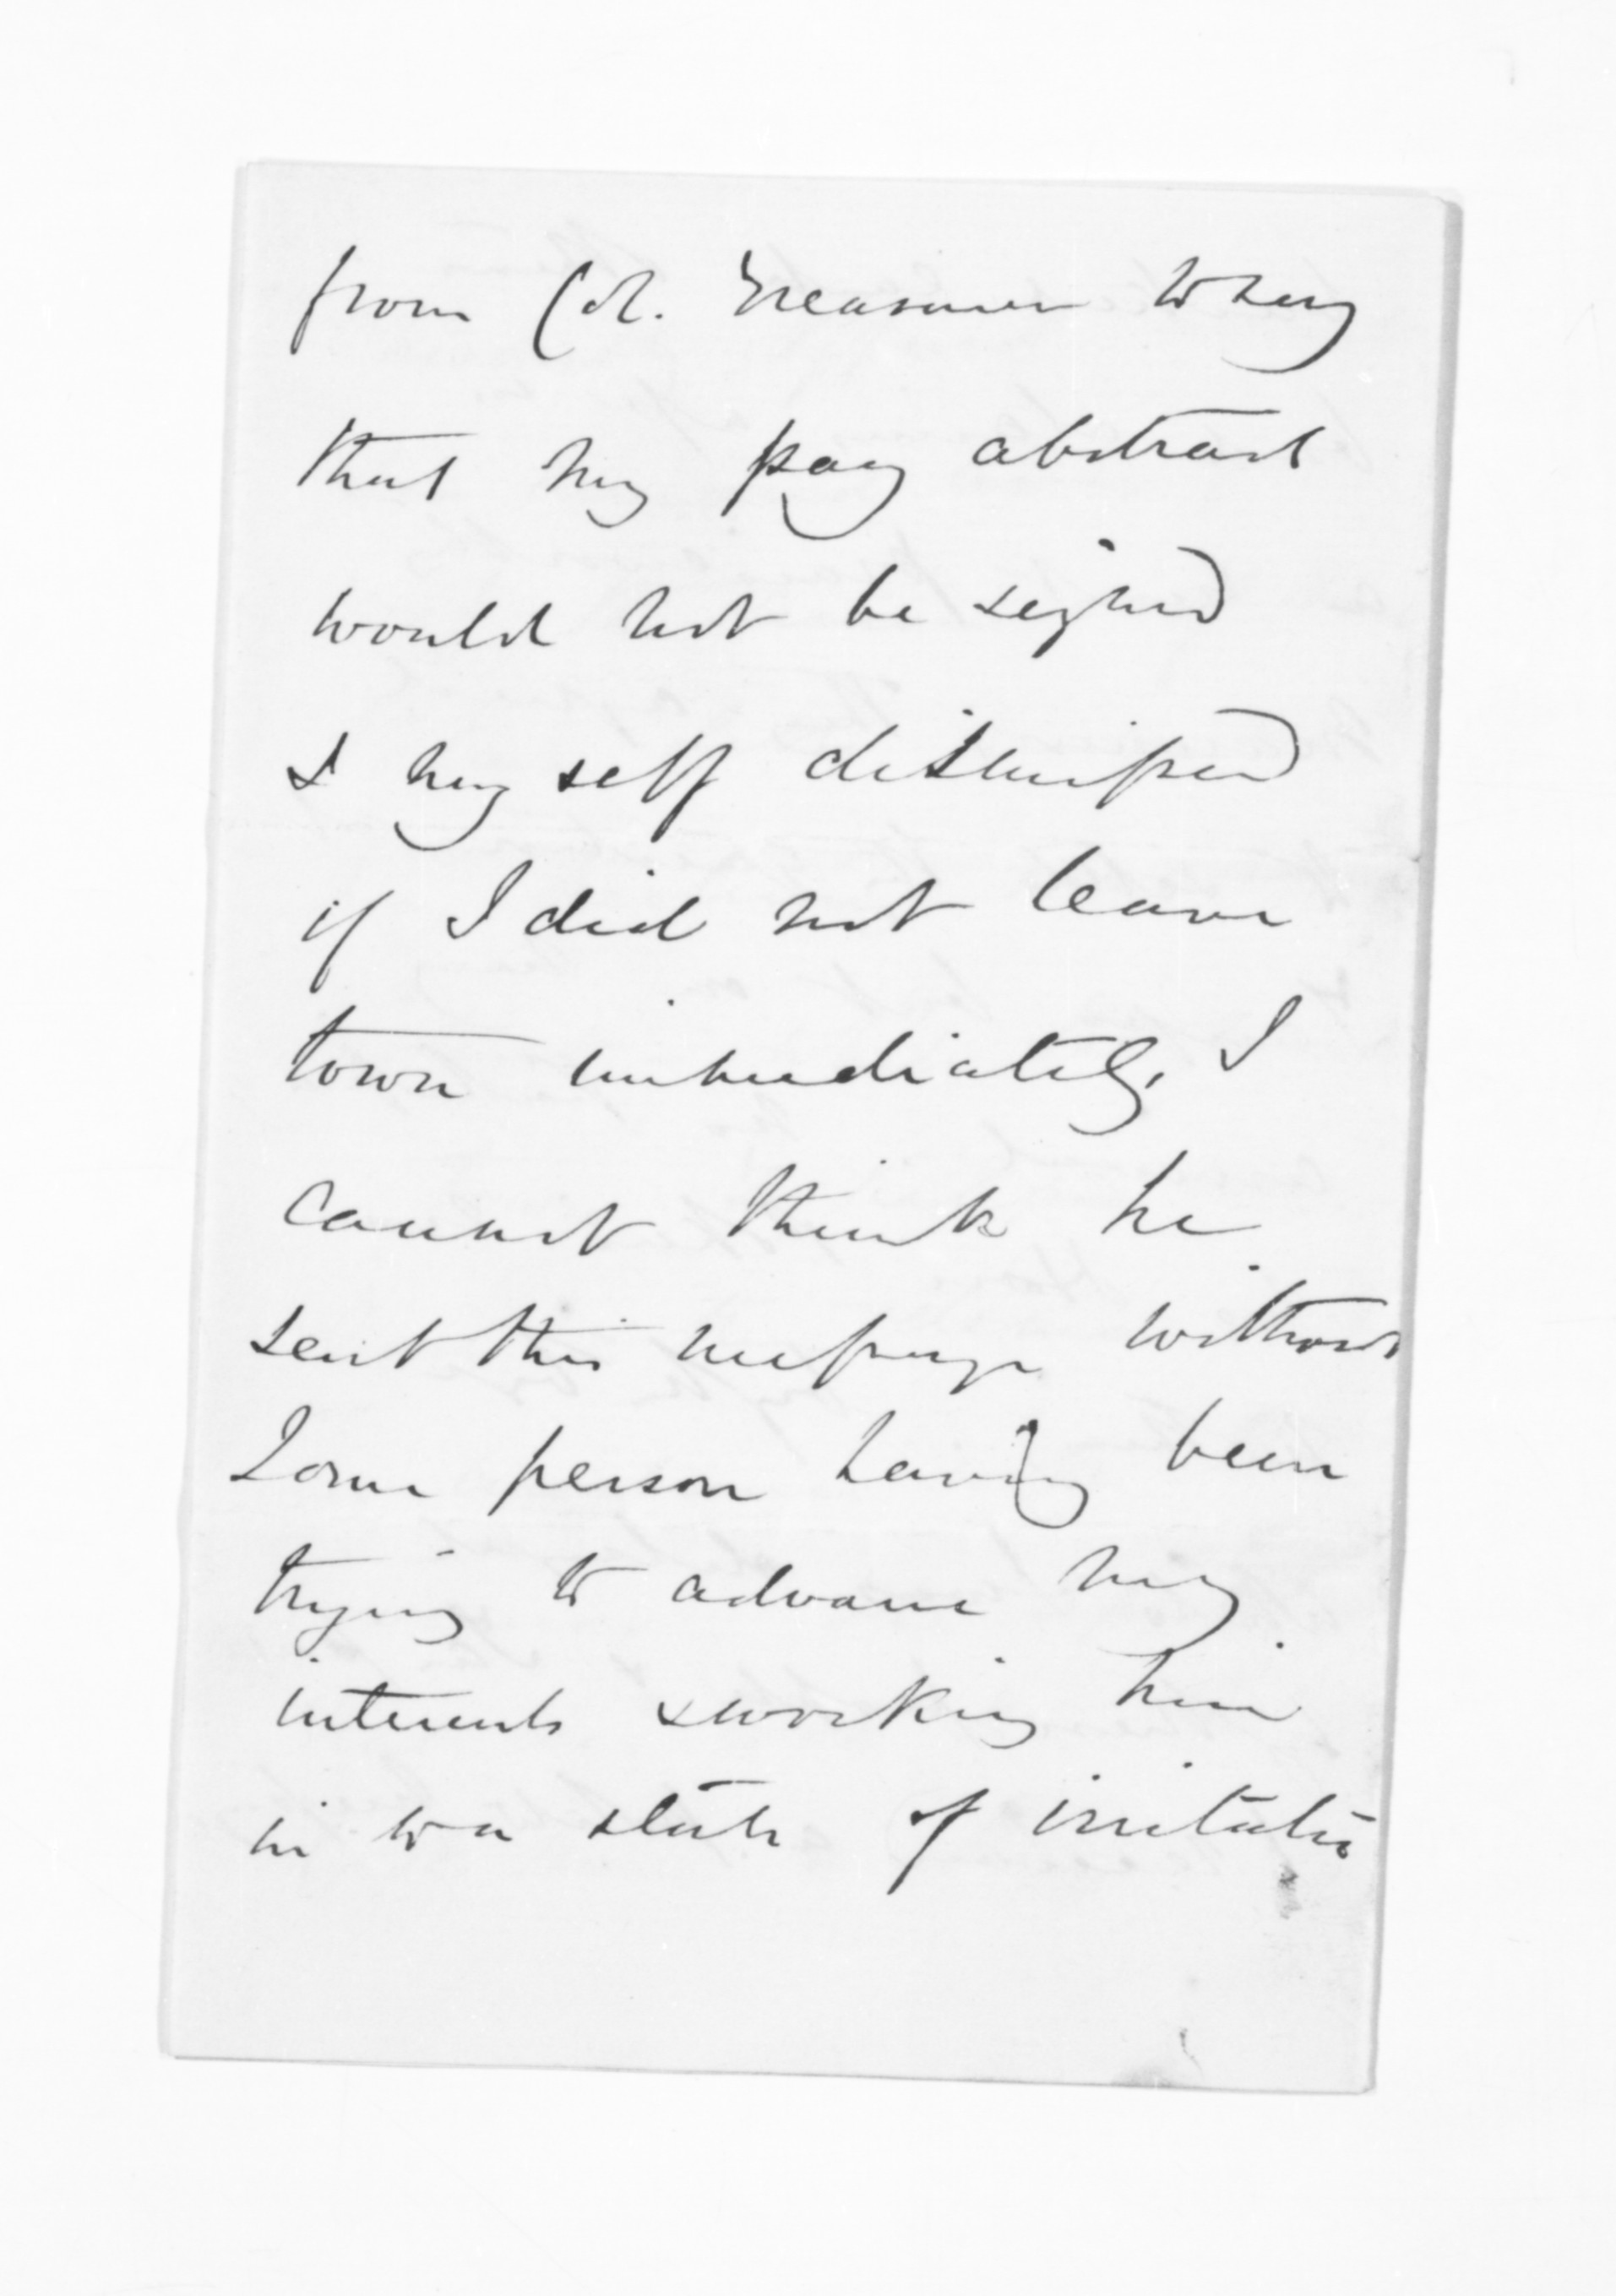 from Col. Treasurer to say
that my pay abstract
would not be signed
& myself dismissed
if I did not leave
town immediately, I
cannot think he
sent this message without
some person having been
trying to advance my
interests & working him
in to a state of irritation